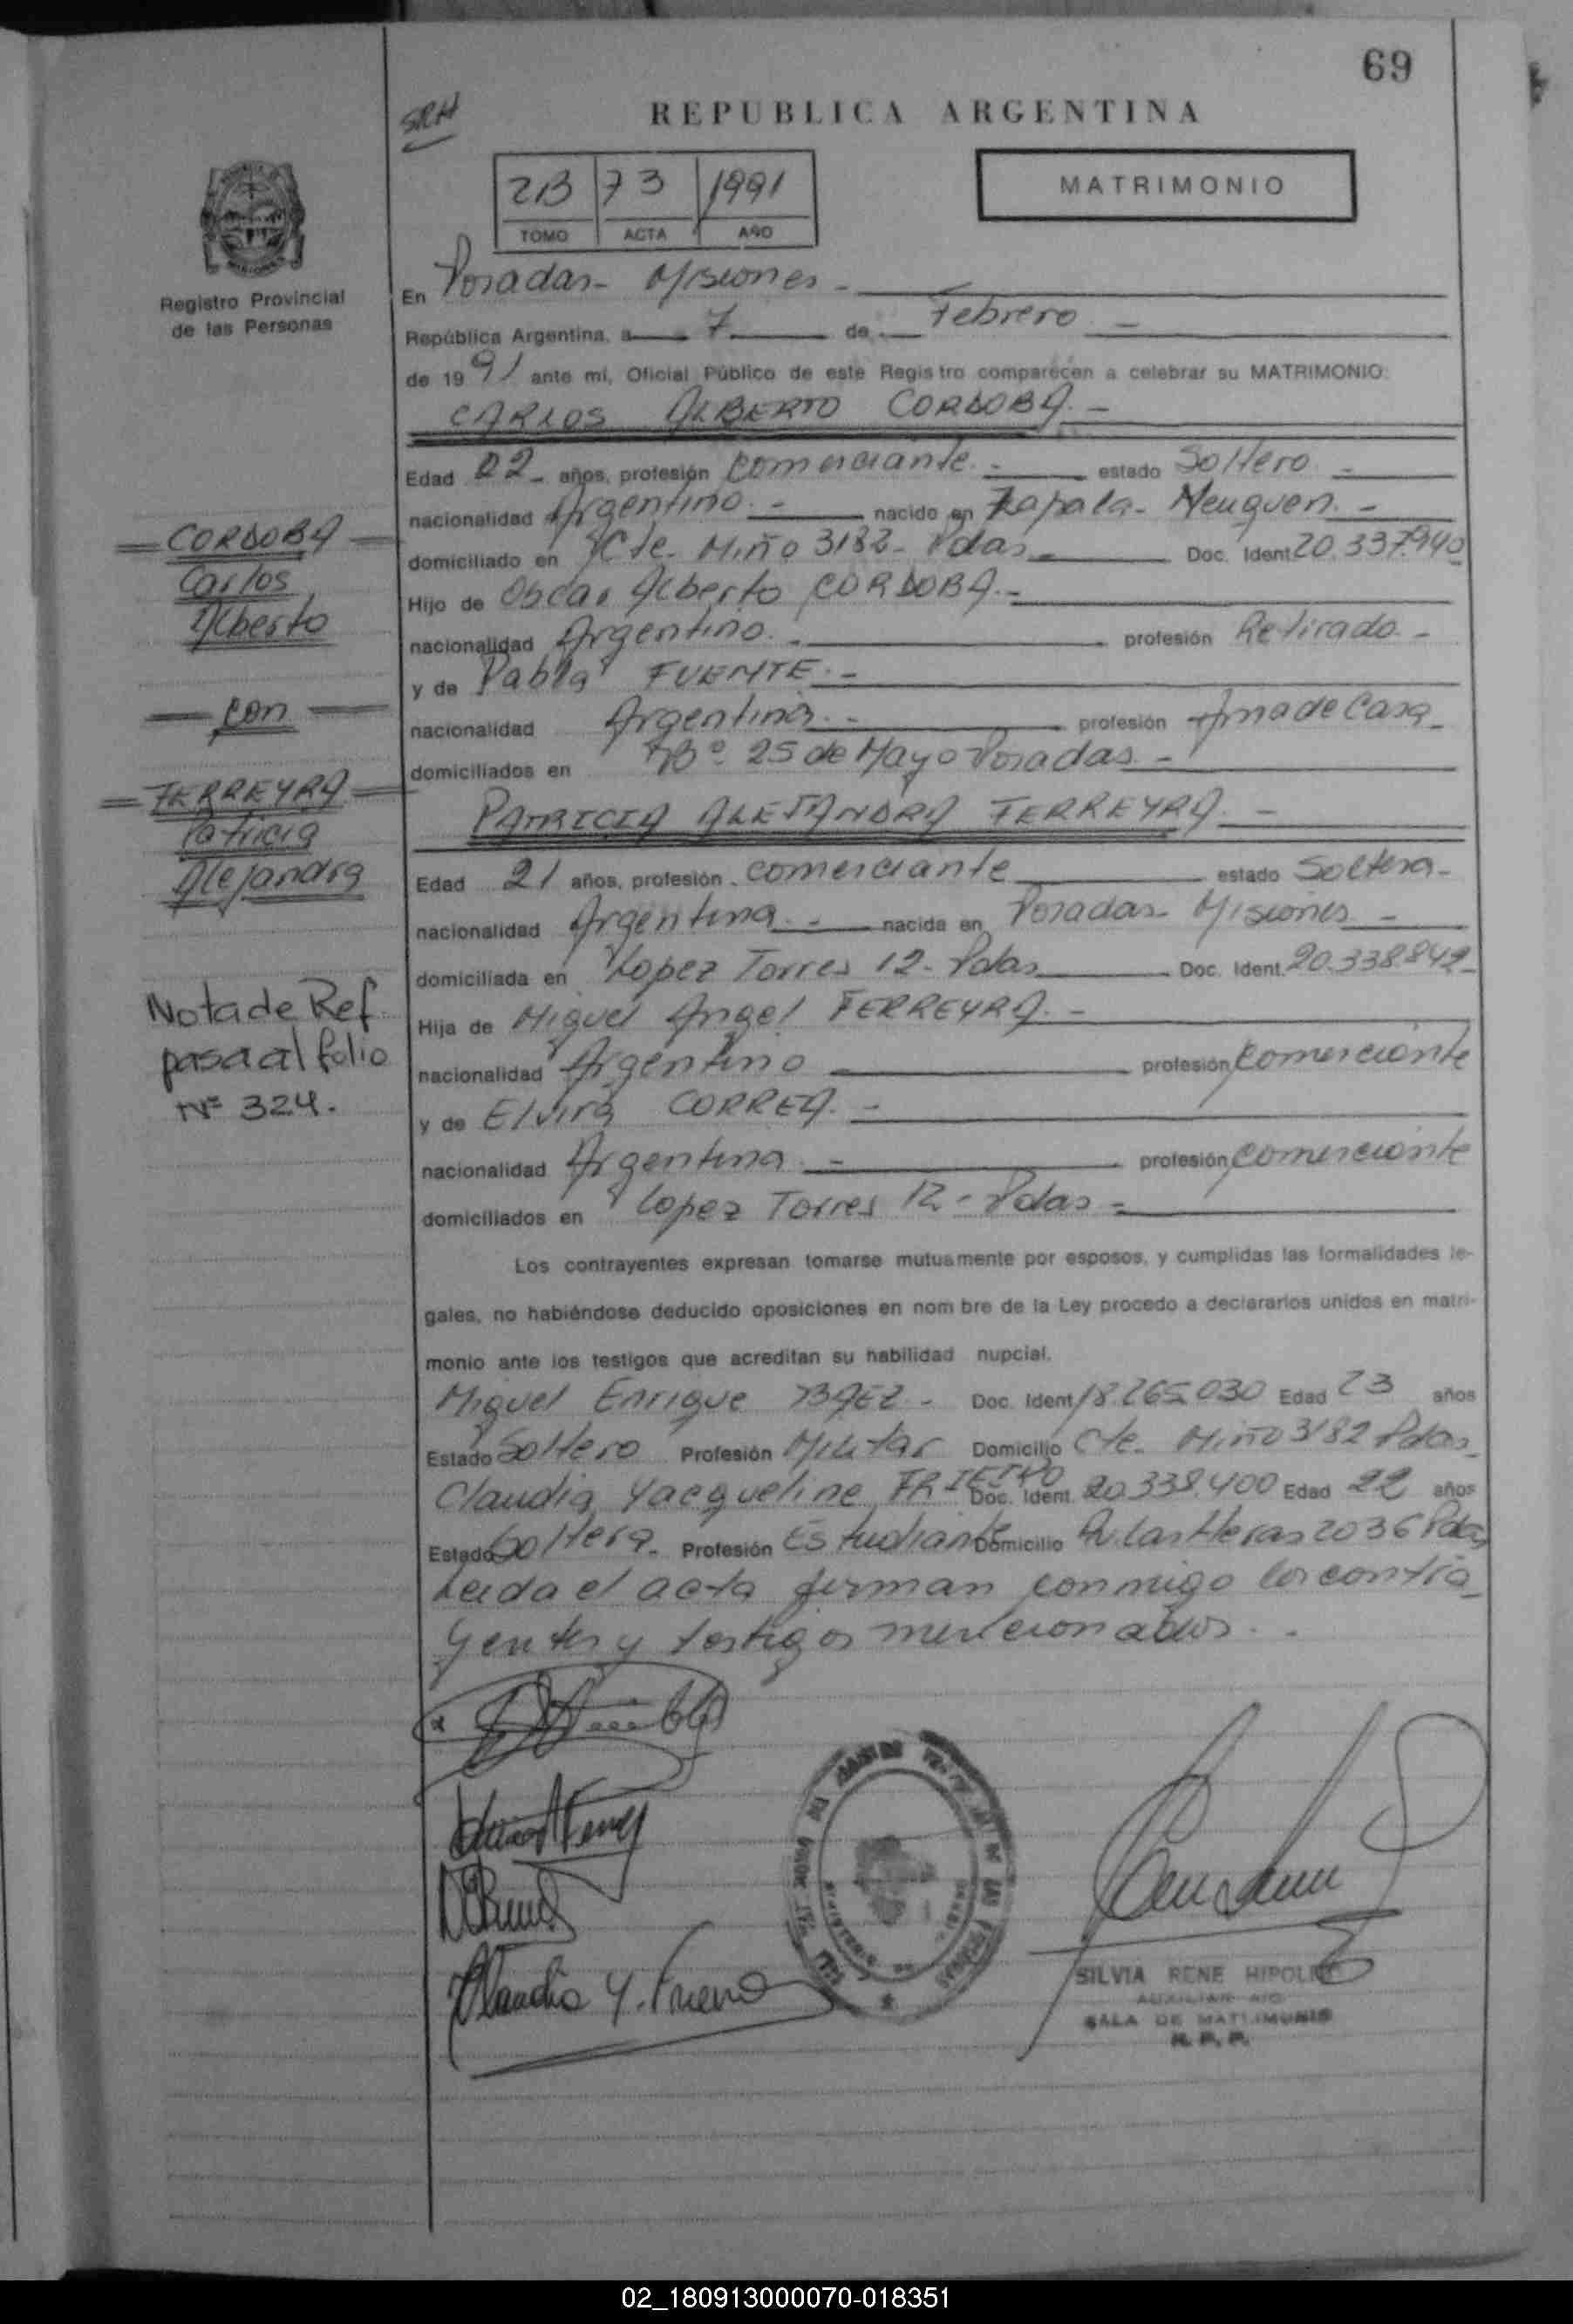 69
SRH
REPUBLICA ARGENTINA
2B 73 1991
TOMO ACTA AÑO
MATRIMONIO
Registro Provincial
de las Personas
En Posadas- Misiones -
República Argentina, a 7 de Febrero -
de 1991 ante mí, Oficial Público de este Registro comparecen a celebrar su MATRIMONIO:
CARLOS ALBERTO CORDOBA. -
Edad 22- años, profesión comerciante. - estado Soltero -
nacionalidad Argentino. - nacido en Zapala- Neuquen. -
domiciliado en Cte. Miño 3182- Pdas - Doc. Ident. 20.337.940
Hijo de Oscar Alberto CORDOBA. -
nacionalidad Argentino. - profesión Retirado -
y de Pabla FUENTE. -
nacionalidad Argentina. - profesión Ama de Casa -
domiciliados en Bº 25 de Mayo Posadas. -
PATRICIA ALEJANDRA FERREYRA. -
Edad 21 años, profesión comerciante estado Soltera-
nacionalidad Argentina. - nacida en Posadas- Misiones -
domiciliada en Lopez Torres 12- Pdas Doc. Ident. 20.338.842-
Hija de Miguel Angel FERREYRA. -
nacionalidad Argentino profesión comerciante
y de Elvira CORREA. -
nacionalidad Argentina - profesión comerciante
domiciliados en Lopez Torres 12- Pdas -
CORDOBA
Carlos
Alberto
con
FERREYRA
Patricia
Alejandra
Nota de Ref
pasa al folio
Nº 324.
Los contrayentes expresan tomarse mutuamente por esposos, y cumplidas las formalidades le-
gales, no habiéndose deducido oposiciones en nom bre de la Ley procedo a declararlos unidos en matri-
monio ante los testigos que acreditan su habilidad nupcial.
Miguel Enrique BAEZ - Doc. Ident. 18.265.030 Edad 23 años
Estado Soltero Profesión Militar Domicilio Cte. Miño 3182 Pdas
Claudia Yacqueline Doc. Ident. 20.338.400 Edad 22 años
Estado Soltera- Profesión Estudiante Domicilio Av. Las Heras 2036 Pdas
Leida el acta firman conmigo los contra-
yentes y testigos mencionados. -
Claudia Y.
SILVIA RENE HIPOLITO
SALA DE MATRIMONIO
R. P. P.
02_180913000070-018351